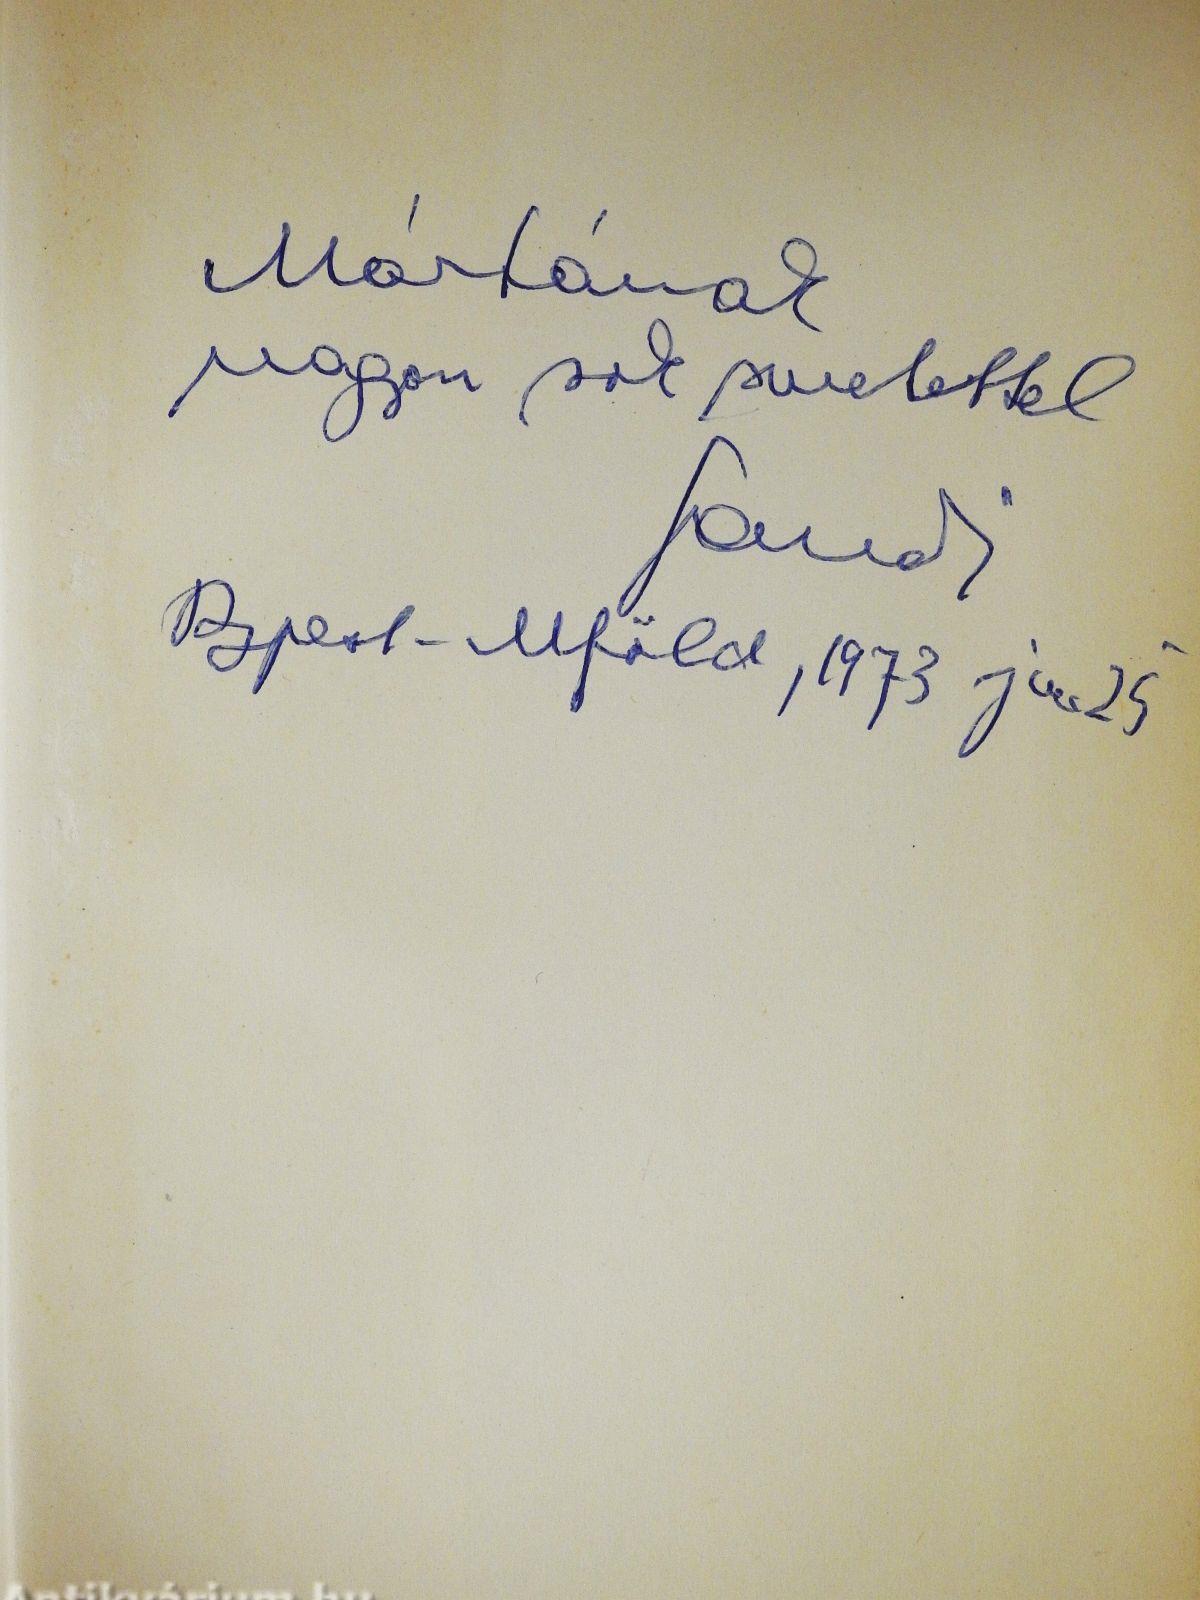 Mártának
nagyon sok szeretettel
Sandi
Bpest-Mföld, 1973 jun 25
Antikvárium.hu